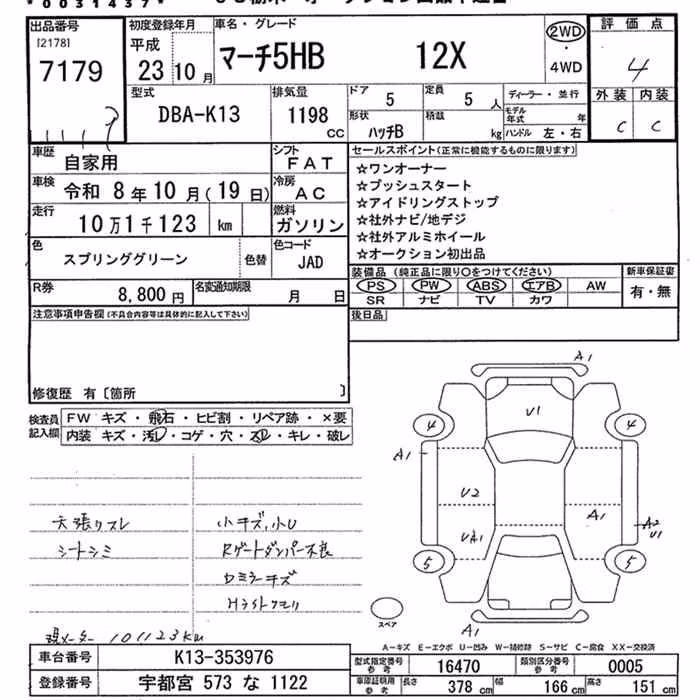 *0031437*
出品番号
[2178]
7179
初度登録年月
平成
23 10 月
車名・グレード
マーチ5HB 12X
2WD
・
4WD
評価点
4
外装 内装
C C
型式
DBA-K13
排気量
1198
CC
ドア
5
定員
5 人
ディーラー・並行
モデル年式 年
形状
ハッチB
積載
kg
ハンドル 左・右
車歴
自家用
シフト
FAT
車検
令和 8 年 10 月(19 日)
冷房
AC
走行
10万1千123 km
燃料
ガソリン
色
スプリンググリーン
色替
色コード
JAD
R券
8,800 円
名変通知期限
月 日
セールスポイント(正常に機能するものに限ります)
☆ワンオーナー
☆プッシュスタート
☆アイドリングストップ
☆社外ナビ/地デジ
☆社外アルミホイール
☆オークション初出品
装備品 (純正品に限り○をつけてください)
PS PW ABS エアB AW
SR ナビ TV カワ
新車保証書
有・無
後日品
注意事項申告欄(不具合内容等は具体的に記入して下さい)
修復歴 有〔箇所 〕
検査員記入欄
FW キズ・飛石・ヒビ割・リペア跡・×要
内装 キズ・汚レ・コゲ・穴・スレ・キレ・破レ
天張りスレ
シートシミ
小キズ,小U
Rゲートダンパー不良
Dミラーキズ
Hライトクモリ
現メーター 101123KM
A1
U1
4 4
A1
U2
A1
A2
U1
UA1
5 5
スペア
A1
A-キズ E-エクボ U-凹み W-補修跡 S-サビ C-腐食 XX-交換済
車台番号
K13-353976
登録番号
宇都宮 573 な 1122
型式指定番号
参考
16470
類別区分番号
参考
0005
車庫証明用
参考
長さ 378 cm
幅 166 cm
高さ 151 cm